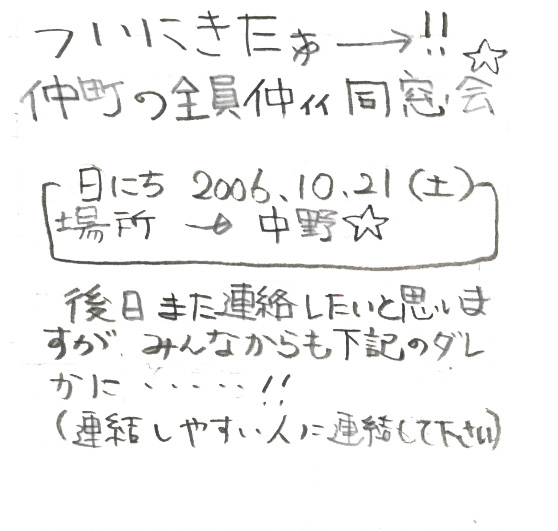 ついにきたぁ→!!☆
仲町の全員仲イイ同窓会
日にち 2006.10.21(土)
場所 → 中野☆
後日また連絡したいと思いま
すが、みんなからも下記のダレ
かに・・・・・!!
(連結しやすい人に連結して下さい)